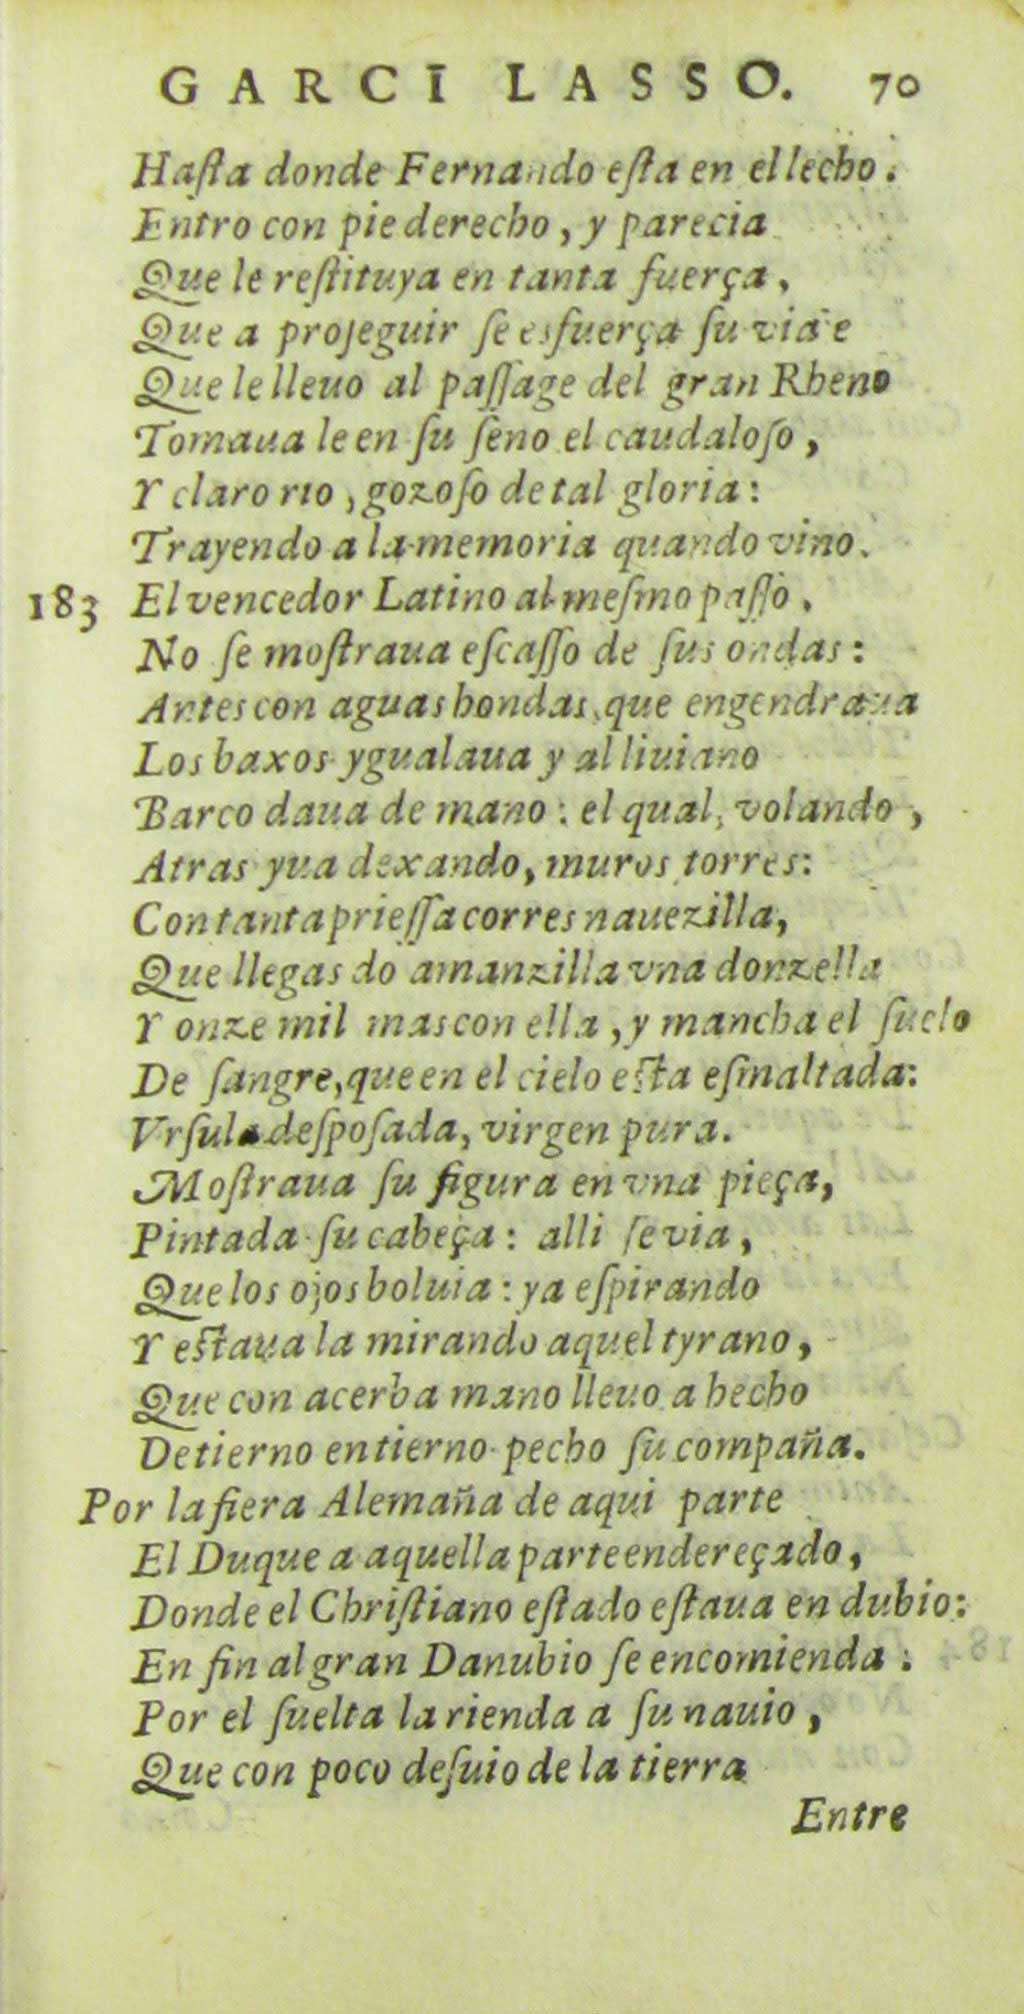 GARCI LASSO. 70
Hasta donde Fernando esta en el lecho.
Entro con pie derecho, y parecia
Que le restituya en tanta fuerça,
Que a proseguir se esfuerça su viaie
Que le lleuo al passage del gran Rheno
Tomaua le en su seno el caudaloso,
Y claro rio, gozoso de tal gloria:
Trayendo a la memoria quando vino.
183 El vencedor Latino al mesmo passo.
No se mostraua escasso de sus ondas:
Antes con aguas hondas, que engendraua
Los baxos ygualaua y al liuiano
Barco daua de mano: el qual, volando,
Atras yua dexando, muros torres:
Con tanta priessa corres nauezilla,
Que llegas do amanzilla vna donzella
Y onze mil mas con ella, y mancha el suelo
De sangre, que en el cielo esta esmaltada:
Vrsula desposada, virgen pura.
Mostraua su figura en vna pieça,
Pintada su cabeça: alli se via,
Que los ojos boluia: ya espirando
Y estaua la mirando aquel tyrano,
Que con acerba mano lleuo a hecho
De tierno en tierno pecho su compaña.
Por la fiera Alemaña de aqui parte
El Duque a aquella parte endereçado,
Donde el Christiano estado estaua en dubio:
En fin al gran Danubio se encomienda:
Por el suelta la rienda a su nauio,
Que con poco desuio de la tierra
Entre